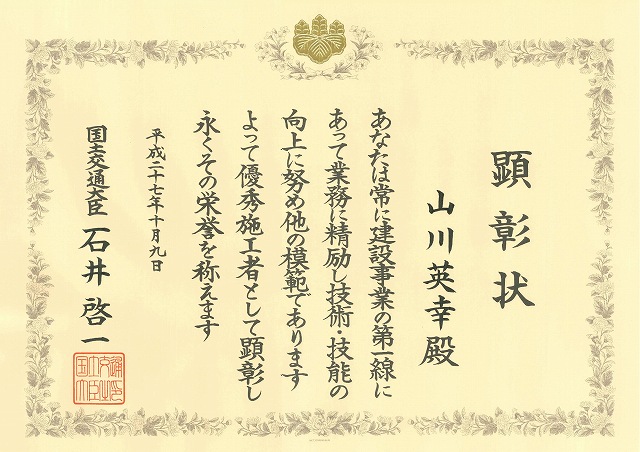 顕彰状
山川英幸殿
あなたは常に建設事業の第一線に
あって業務に精励し技術・技能の
向上に努め他の模範であります
よって優秀施工者として顕彰し
永くその栄誉を称えます
平成二十七年十月九日
国土交通大臣 石井啓一